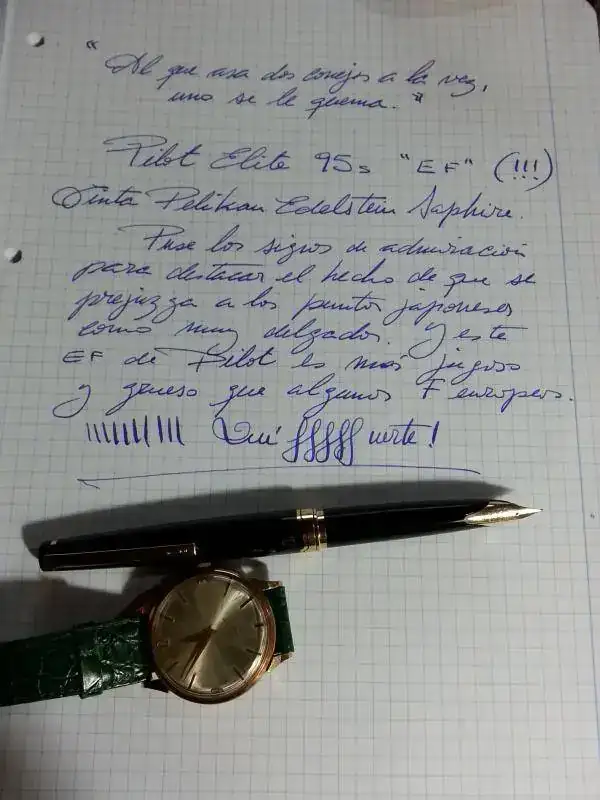 "Al que asa dos conejos a la vez,
uno se le quema."
Pilot Elite 95s "EF" (!!!)
Tinta Pelikan Edelstein Saphire.
Puse los signos de admiración
para destacar el hecho de que se
prejuzga a los puntos japoneses
como muy delgados. Y este
EF de Pilot es más jugoso
y grueso que algunos F europeos.
Qué fffff uerte!